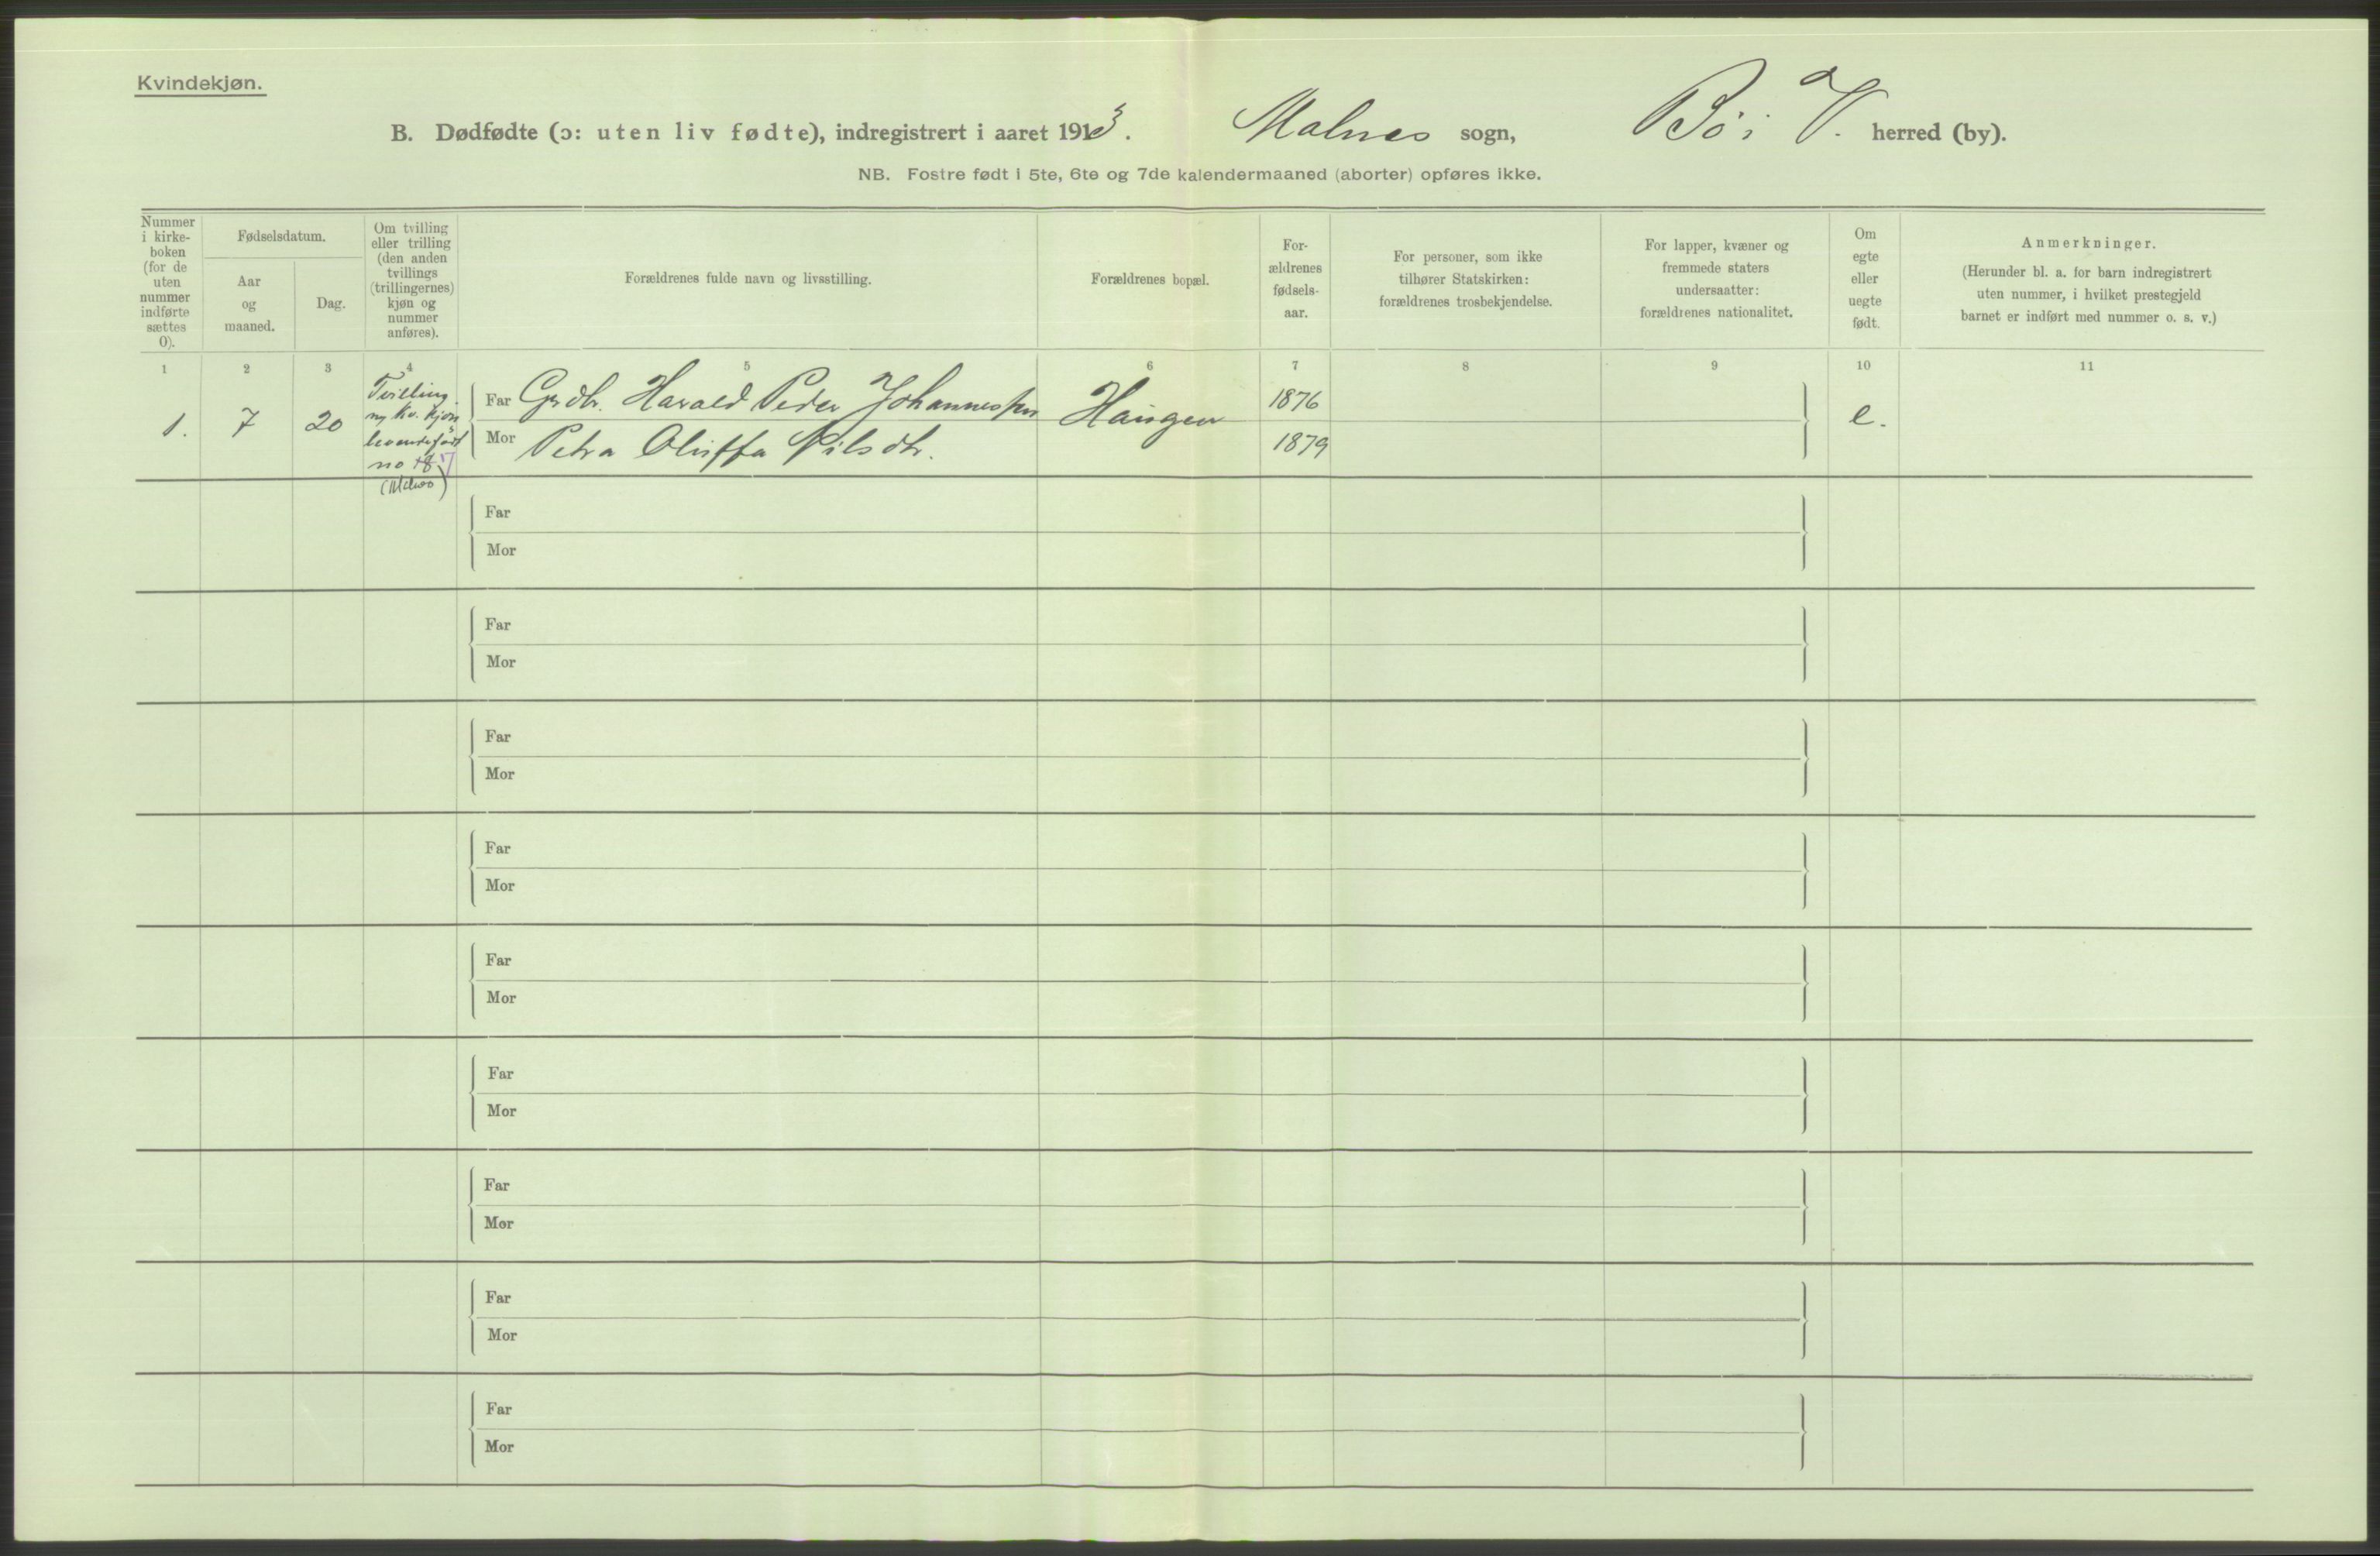 Kvindekjøn.
B. Dødfødte (ɔ: uten liv fødte), indregistrert i aaret 1913. Malnes sogn, Bø i V. herred (by).
NB. Fostre født i 5te, 6te og 7de kalendermaaned (aborter) opføres ikke.
Nummer
i kirke-
boken
(for de
uten
nummer
indførte
sættes
0).
Fødselsdatum.
Aar
og
maaned.
Dag.
Om tvilling
eller trilling
(den anden
tvillings
(trillingernes)
kjøn og
nummer
anføres).
Forældrenes fulde navn og livsstilling.
Forældrenes bopæl.
For-
ældrenes
fødsels-
aar.
For personer, som ikke
tilhører Statskirken:
forældrenes trosbekjendelse.
For lapper, kvæner og
fremmede staters
undersaatter:
forældrenes nationalitet.
Om
egte
eller
uegte
født.
Anmerkninger.
(Herunder bl. a. for barn indregistrert
uten nummer, i hvilket prestegjeld
barnet er indført med nummer o. s. v.)
1 2 3 4 5 6 7 8 9 10 11
1. 7 20
Tvilling
m. kv. kjøn
levendefødt
no 187
(Malnes)
Far Grdbr. Harald Peder Johannessen Haugen 1876 e.
Mor Petra Oluffa Nilsdtr. 1879
Far
Mor
Far
Mor
Far
Mor
Far
Mor
Far
Mor
Far
Mor
Far
Mor
Far
Mor
Far
Mor